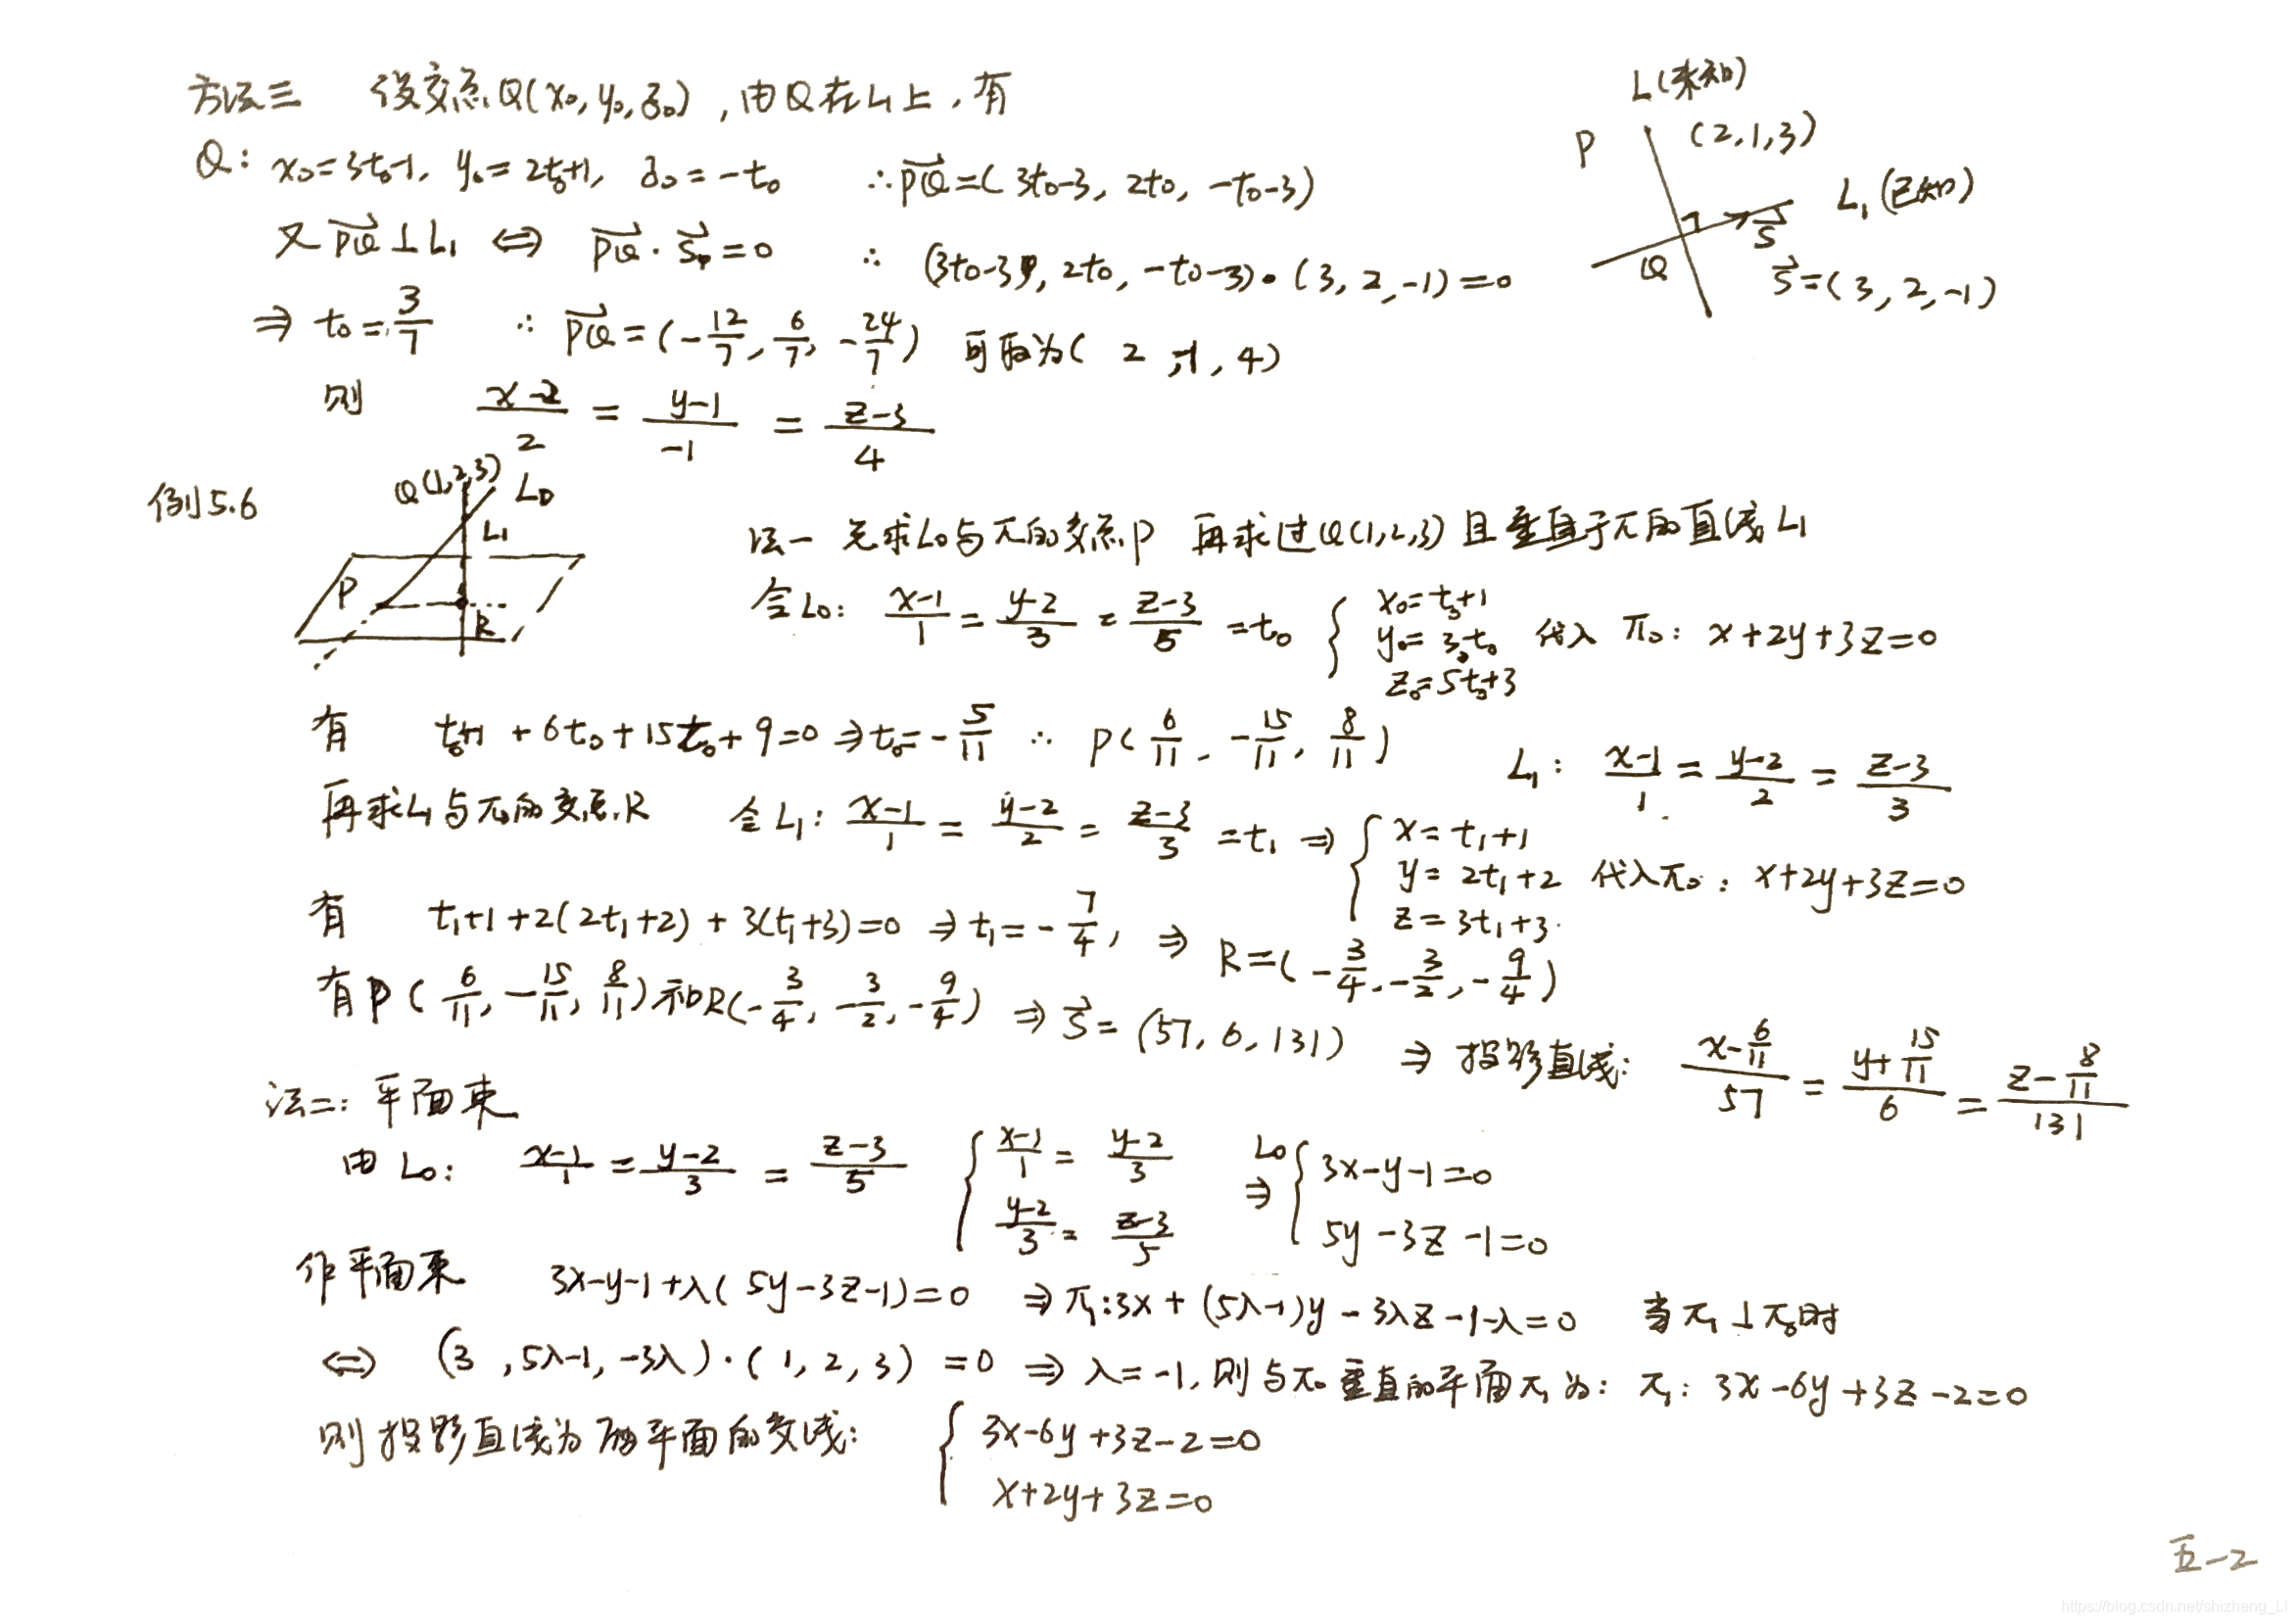 方法三 设交点Q(x₀,y₀,z₀),由Q在L₁上,有
Q: x₀=3t₀-1, y₀=2t₀+1, z₀=-t₀ ∴PQ→=(3t₀-3, 2t₀, -t₀-3)
又PQ→⊥L₁ ⇔ PQ→·S→=0 ∴ (3t₀-3, 2t₀, -t₀-3)·(3,2,-1)=0
⇒ t₀=3/7 ∴ PQ→=(-12/7, 6/7, -24/7) 可取为(2,-1,4)
则 (x-2)/2 = (y-1)/-1 = (z-3)/4
L(未知)
P (2,1,3)
L₁(已知)
S→
Q
S→=(3,2,-1)
例5.6
Q(1,2,3) L₀
L₁
P
R
法一 先求L₀与π的交点P 再求过Q(1,2,3)且垂直于π的直线L₁
令L₀: (x-1)/1 = (y-2)/3 = (z-3)/5 = t₀ { x₀=t₀+1 y₀=3t₀ z₀=5t₀+3 代入 π₀: x+2y+3z=0
有 t₀+1+6t₀+15t₀+9=0 ⇒ t₀=-5/11 ∴ P(6/11, -15/11, 8/11) L₁: (x-1)/1 = (y-2)/2 = (z-3)/3
再求L₁与π₀的交点R 令L₁: (x-1)/1 = (y-2)/2 = (z-3)/3 = t₁ ⇒ { x=t₁+1 y=2t₁+2 z=3t₁+3 代入π₀: x+2y+3z=0
有 t₁+1+2(2t₁+2)+3(t₁+3)=0 ⇒ t₁=-7/4, ⇒ R=(-3/4, -3/2, -9/4)
有P(6/11, -15/11, 8/11)和R(-3/4, -3/2, -9/4) ⇒ S→=(57,6,131) ⇒ 投影直线: (x-6/11)/57 = (y+15/11)/6 = (z-8/11)/131
法二: 平面束
由L₀: (x-1)/1 = (y-2)/3 = (z-3)/5 { (x-1)/1 = (y-2)/3 (y-2)/3 = (z-3)/5 L₀ ⇒ { 3x-y-1=0 5y-3z-1=0
作平面束 3x-y-1+λ(5y-3z-1)=0 ⇒ π₁:3x+(5λ-1)y-3λz-1-λ=0 当π₁⊥π₀时
⇔ (3,5λ-1,-3λ)·(1,2,3)=0 ⇒ λ=-1,则与π₀垂直的平面π₁为: π₁: 3x-6y+3z-2=0
则投影直线为两平面的交线: { 3x-6y+3z-2=0 x+2y+3z=0
五-2
https://blog.csdn.net/shizheng_Li